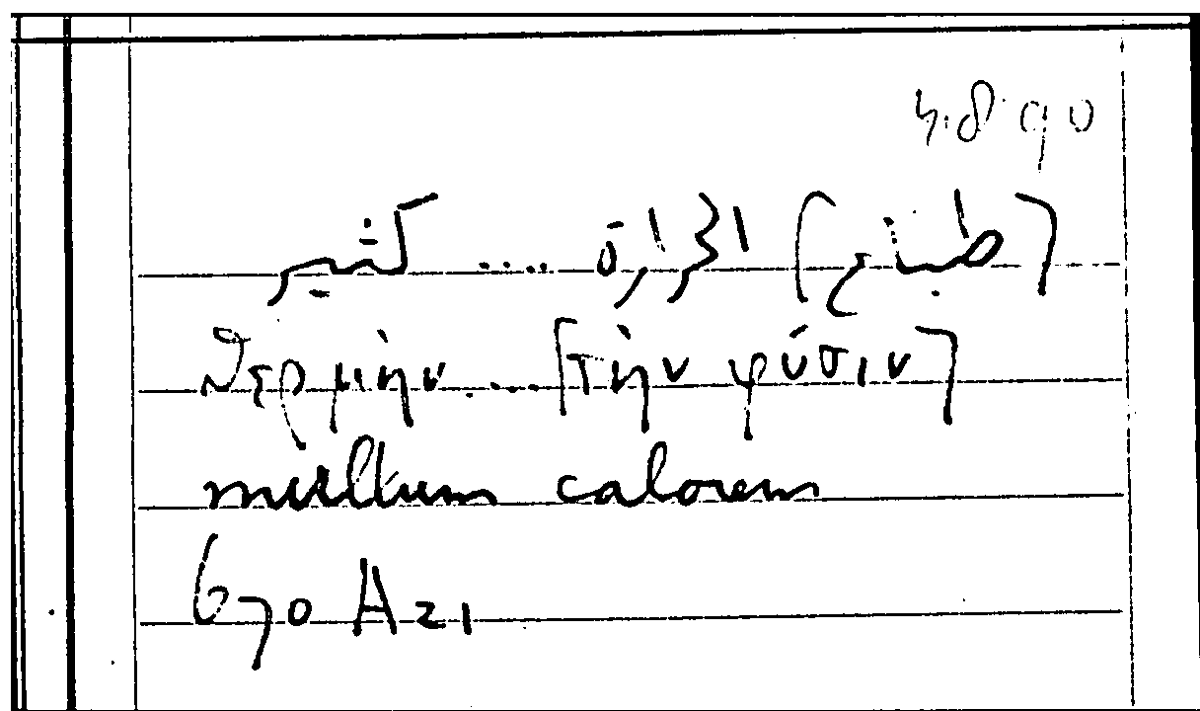 [طباع] الحرارة .... كثير
θερμὴν .... [τὴν φύσιν]
multum calorem
670 A 21